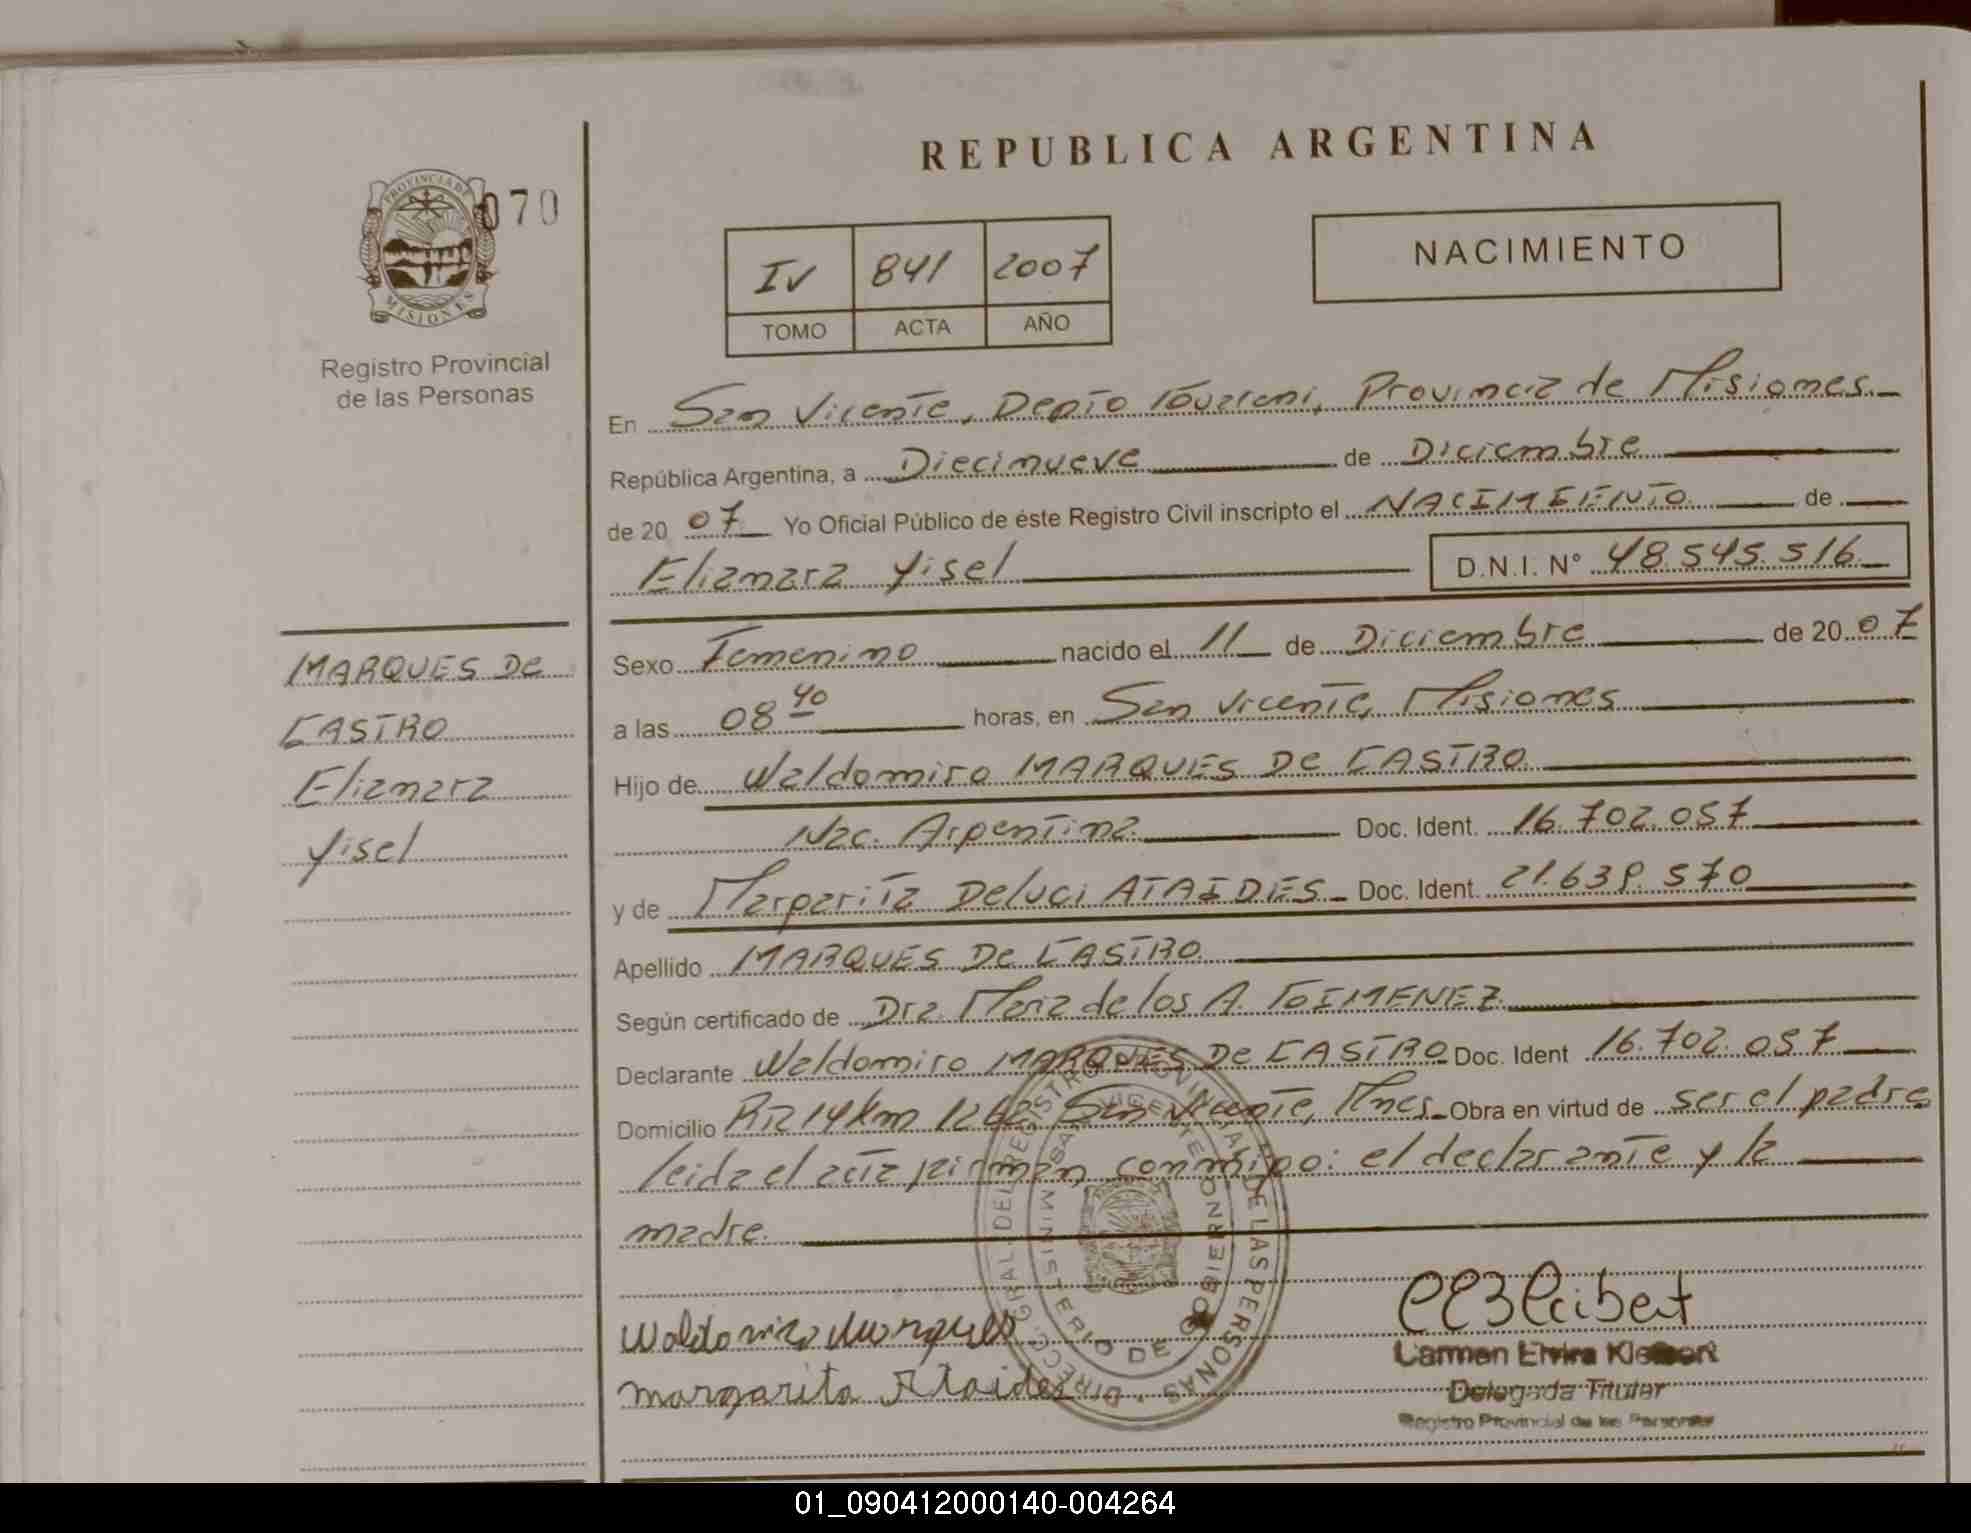 REPUBLICA ARGENTINA
PROVINCIA DE
MISIONES
070
Registro Provincial
de las Personas
IV 841 2007
TOMO ACTA AÑO
NACIMIENTO
En San Vicente, Depto Guarani, Provincia de Misiones.
República Argentina, a Diecinueve de Diciembre
de 20 07 Yo Oficial Público de éste Registro Civil inscripto el NACIMIENTO de
Elianara Yisel D.N.I. N° 48.545.516
MARQUES De
CASTRO
Elianara
Yisel
Sexo Femenino nacido el 11 de Diciembre de 20 07
a las 08 40 horas, en San Vicente, Misiones
Hijo de Waldomiro MARQUES De CASTRO
Nac. Argentina Doc. Ident. 16.702.057
y de Margarita Deluci ATAIDES Doc. Ident. 21.639.570
Apellido MARQUES De CASTRO
Según certificado de Dra. Maria de los A. GIMENEZ
Declarante Waldomiro MARQUES De CASTRO Doc. Ident 16.702.057
Domicilio R 14 Km 1262 San Vicente, Mnes Obra en virtud de ser el padre
leida el acta firman conmigo: el declarante y la
madre.
DIRECC. GRAL. DEL REGISTRO PROVINCIAL DE LAS PERSONAS
MINISTERIO DE GOBIERNO
Waldomiro Marques
margarita Ataides
Carmen Elvira Kleibert
Delegada Titular
Registro Provincial de las Personas
01_090412000140-004264